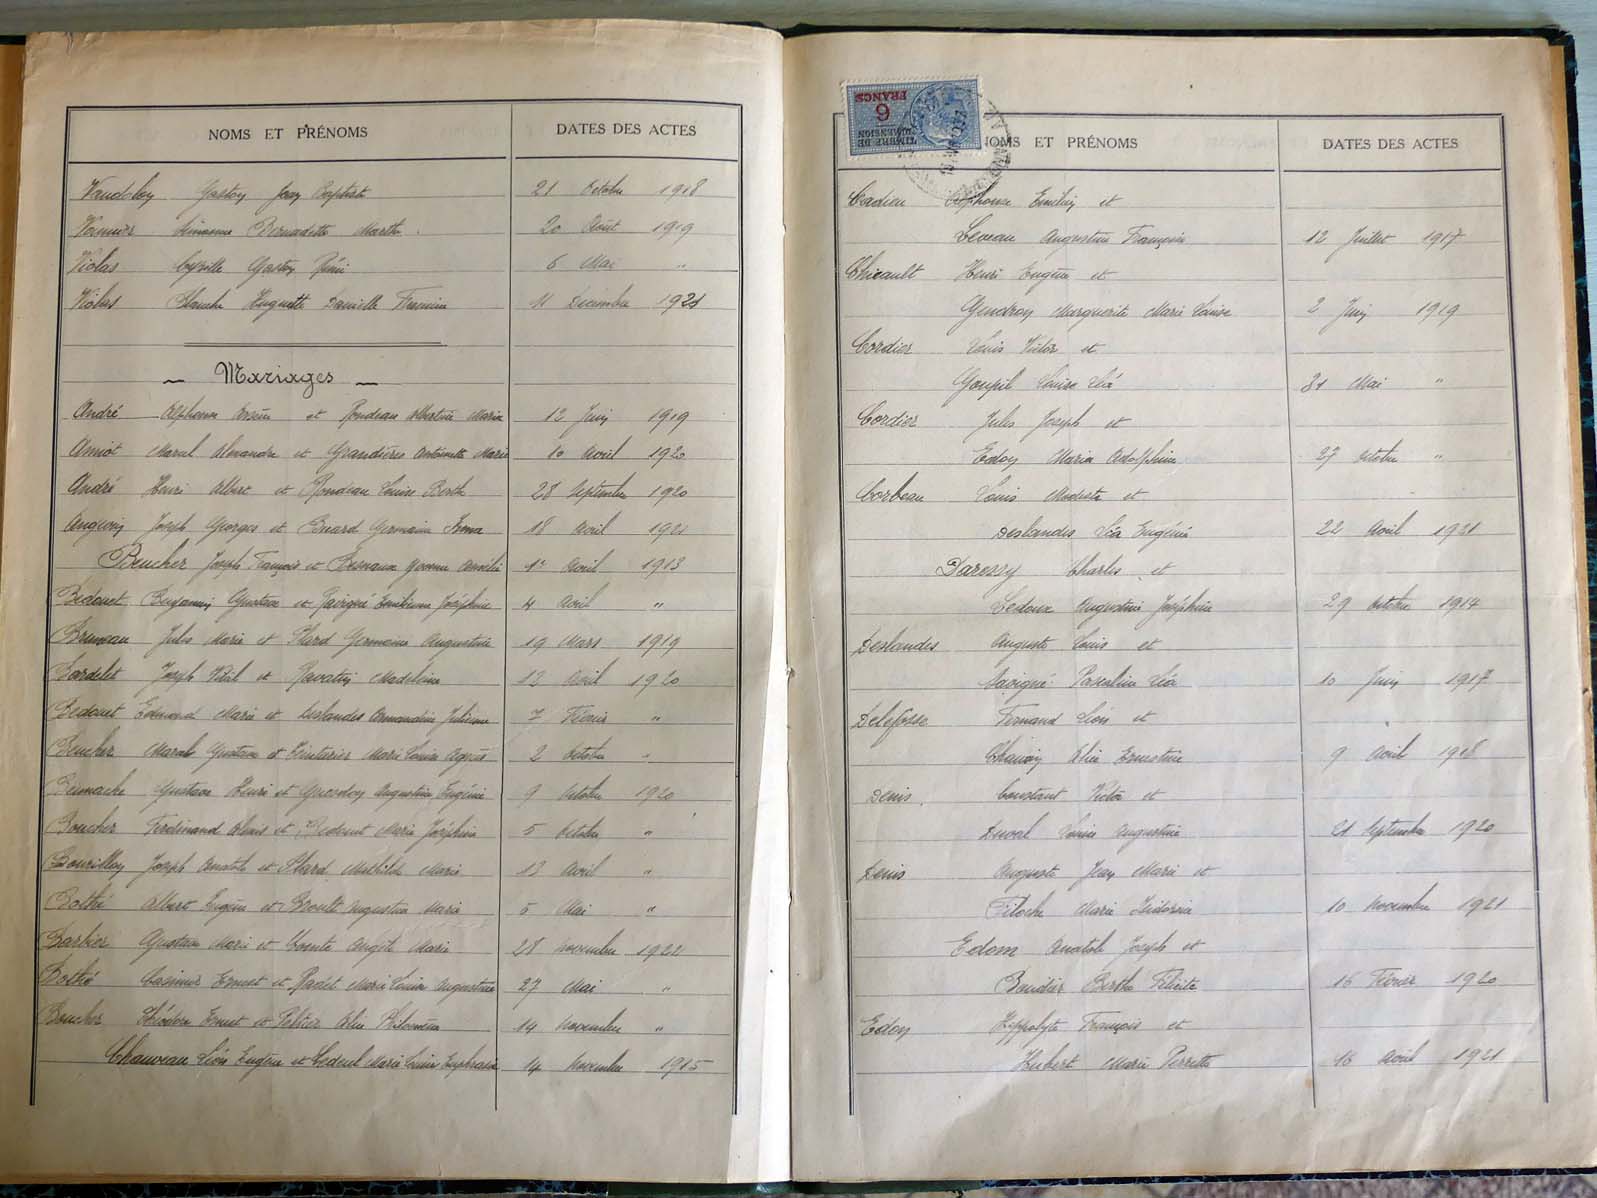 NOMS ET PRÉNOMS DATES DES ACTES
Gaston Jean Baptiste 21 Octobre 1918
Vannier Simonne Bernadette Marthe 20 Août 1919
Violas Cyrille Gaston Rémi 6 Mai "
Violas Blanche Huguette Danielle 11 Décembre 1921
Mariages
André Alphonse et Rondeau Albertine Maria 12 Juin 1919
Amiot Marcel Alexandre et Grandières Antoinette Marie 10 Avril 1920
André Henri Albert et Rondeau Louise Berthe 28 Septembre 1920
Joseph Georges et Germaine Irma 18 Avril 1921
Beucher Joseph François et Yvonne 1er Avril 1913
Bedouet Benjamin Gustave et Joséphine 4 Avril "
Bruneau Jules Marie et Germaine Augustine 19 Mars 1919
Bordelet Joseph Vital et Madeleine 12 Avril 1920
Bedouet Edmond Marie et Deslandes Armandine Julienne 7 Février "
Beucher Marcel Gustave et Marie Louise 2 Octobre "
Gustave Henri et Augustine Eugénie 9 Octobre 1920
Boucher Ferdinand Alexis et Bedouet Marie Joséphine 5 Octobre "
Joseph Anatole et Mathilde Marie 13 Avril "
Bothé Albert Eugène et Augustine Marie 5 Mai "
Barbier Gustave Marie et Angèle Marie 28 Novembre 1922
Bothé Casimir Ernest et Marie Louise Augustine 27 Mai "
Boucher Théodore Ernest et Alice Philomène 14 Novembre "
Chauveau Léon Eugène et Marie Louise Euphrasie 14 Novembre 1915
6 FRANCS
TIMBRE DE DIMENSION
NOMS ET PRÉNOMS DATES DES ACTES
Cadieu Alphonse Emilien et
Leveau Augustine Françoise 12 Juillet 1917
Chicault Henri Eugène et
Gendron Marguerite Marie Louise 2 Juin 1919
Cordier Louis Victor et
Goupil Louise Léa 31 Mai "
Cordier Jules Joseph et
Edon Maria Adolphine 27 Octobre "
Corbeau Louis Modeste et
Deslandes Léa Eugénie 22 Avril 1921
Daressy Charles et
Ledoux Augustine Joséphine 29 Octobre 1914
Deslandes Auguste Louis et
Léa 10 Juin 1917
Delefosse Fernand Léon et
Alice Ernestine 9 Avril 1918
Denis Constant Victor et
Duval Louise Augustine 21 Septembre 1920
Denis Auguste Jean Marie et
Marie Isidorine 10 Novembre 1921
Edom Anatole Joseph et
Berthe Félicité 16 Février 1920
Edon Hippolyte François et
Hubert Marie Perrette 16 Avril 1921